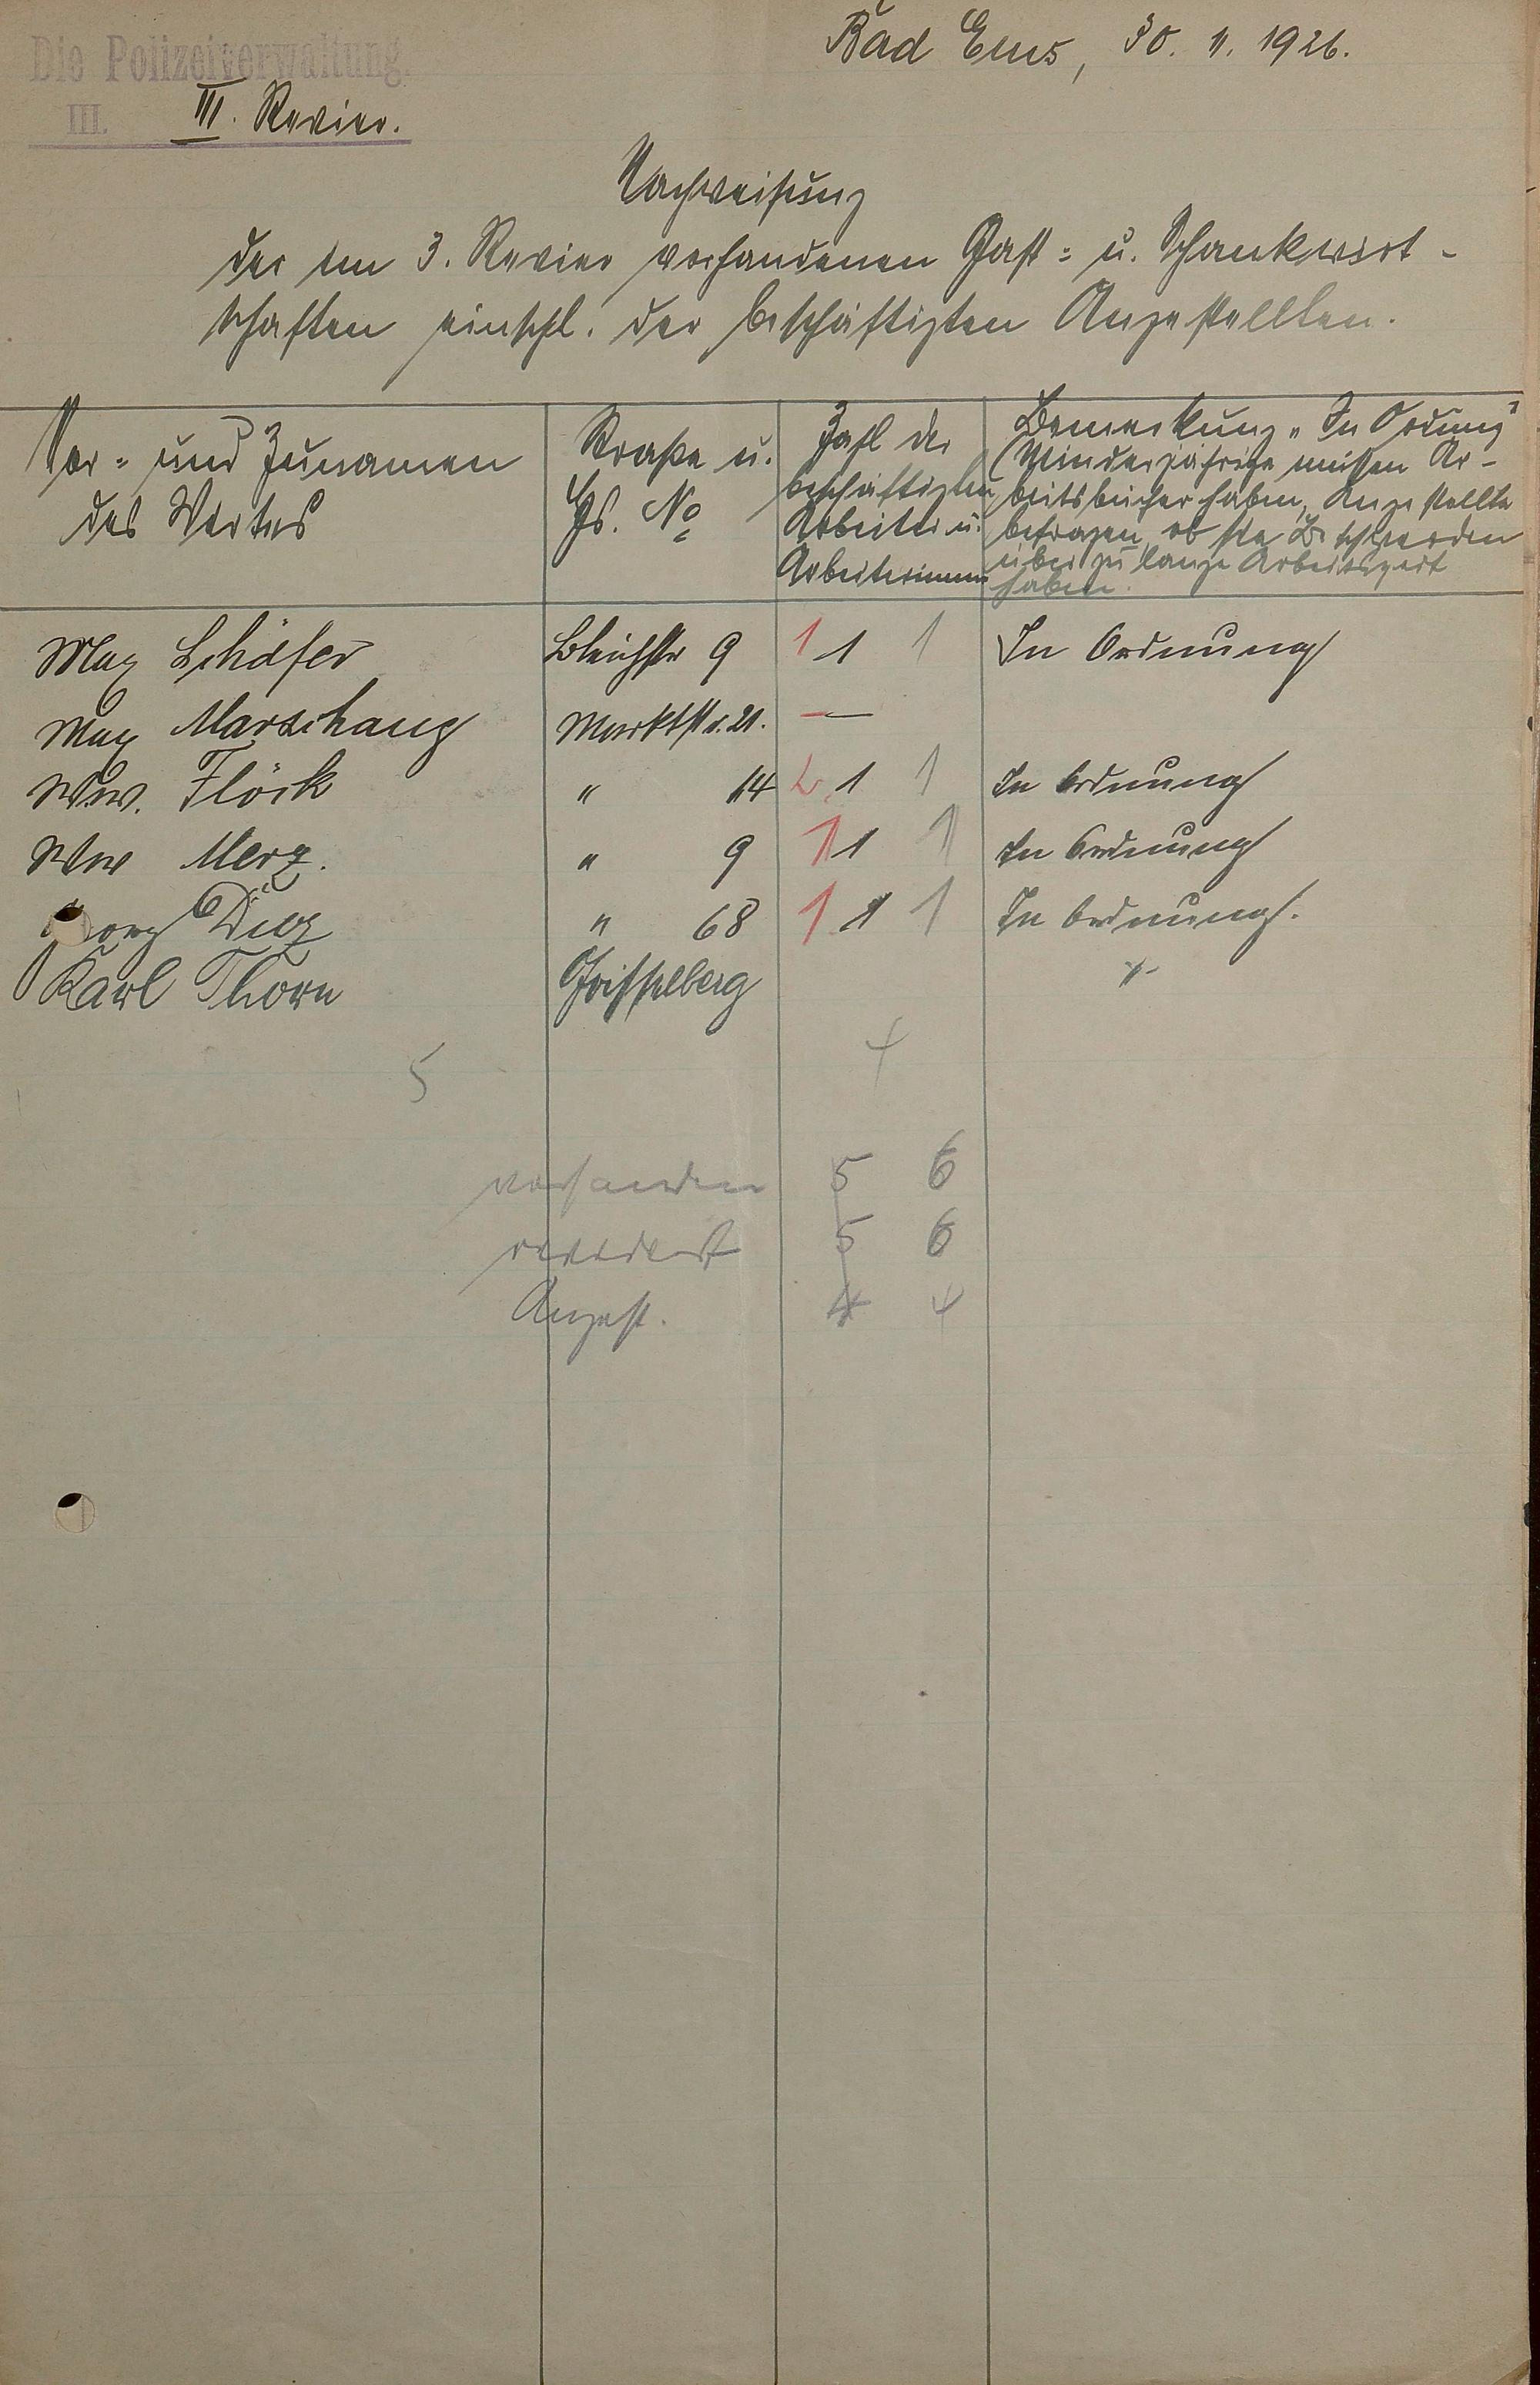 Die Polizeiverwaltung.
III. III. Revier.
Bad Ems, 30. 11. 1926.
Nachweisung
der im 3. Revier vorhandenen Gast= u. Schankwirt-
schaften einschl. der beschäftigten Angestellten.
Vor= und Zunamen
des Wirtes
Straße u.
Hs. No
Zahl der
beschäftigten
Arbeiter u.
Arbeiterinnen
Bemerkung „In Ordnung"
(Minderjährige müssen Ar-
beitsbücher haben, Angestellte
befragen, ob sie Beschwerden
über zu lange Arbeitszeit
haben.
Max Schäfer Bleichstr 9 1 1 1 In Ordnung
Max Marschang Marktstr. 21. —
Ww. Flöck " 14 2 1 1 In Ordnung
Ww Merz. " 9 1 1 1 In Ordnung
Georg Diez " 68 1 1 1 In Ordnung.
Karl Thorn "
5 4
vorhanden 5 6
revidiert 5 6
Angest. 4 4